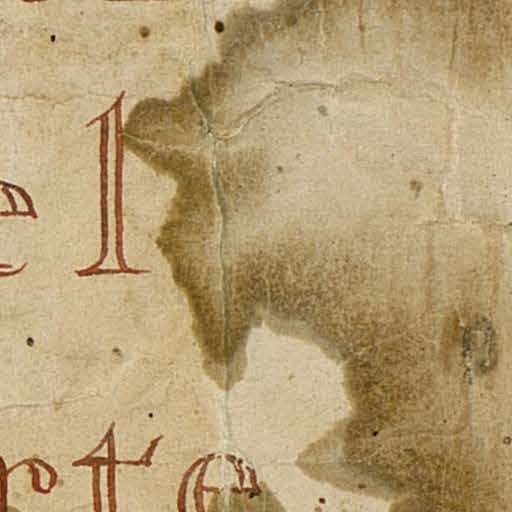 el
rte